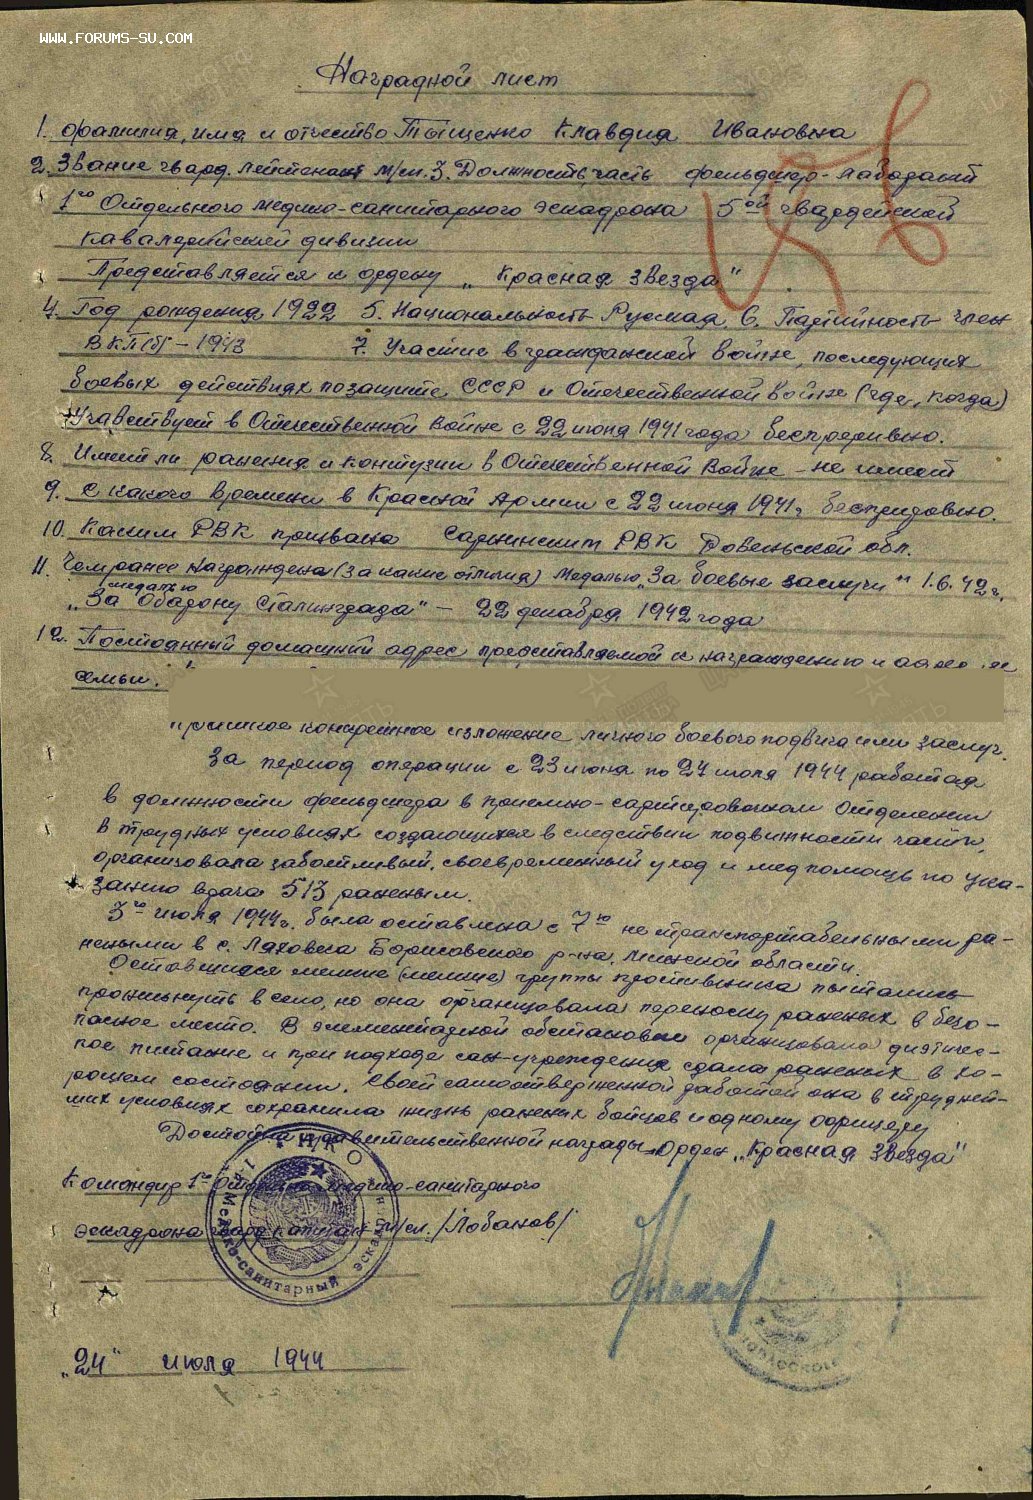 WWW.FORUMS-SU.COM
Наградной лист
1. Фамилия, имя и отчество Тыщенко Клавдия Ивановна
2. Звание гвард. лейтенант м/сл. 3. Должность, часть фельдшер-лаборант
1го Отдельного медико-санитарного эскадрона 5ой гвардейской
кавалерийской дивизии
Представляется к ордену „Красная звезда"
4. Год рождения 1922 5. Национальность Русская 6. Партийность член
ВКП(б) – 1943 7. Участие в гражданской войне, последующих
боевых действиях по защите СССР и Отечественной войне (где, когда)
Учавствует в Отечественной войне с 22 июня 1941 года беспрерывно.
8. Имеет ли ранения и контузии в Отечественной войне – не имеет
9. С какого времени в Красной Армии с 22 июня 1941г. беспрерывно.
10. Каким РВК призвана Сарненским РВК Ровеньской обл.
11. Чем ранее награждена (за какие отличия) Медалью „За боевые заслуги" 1.6.42г.
медалью
„За Оборону Сталинграда" – 22 декабря 1942 года
12. Постоянный домашний адрес представляемой к награждению и адрес ее
семьи.
Краткое конкретное изложение личного боевого подвига или заслуг.
За период операции с 23 июня по 24 июля 1944 работая
в должности фельдшера в приемно-сортировочном отделении
в трудных условиях создающихся в следствии подвижности части,
организовала заботливый, своевременный уход и мед помощь по ука-
занию врача 513 раненым.
3го июля 1944г. была оставлена с 7ю не транспортабельными ра-
неными в с. Ляховка Борисовского р-на, Минской области.
Оставшиеся мелкие (мелкие) группы противника пытались
проникнуть в село, но она организовала переноску раненых в безо-
пасное место. В элементарной обстановке организовала диэтичес-
кое питание и при подходе сан-учреждения сдала раненых в хо-
рошем состоянии. Своей самоотверженной работой она в трудней-
ших условиях сохранила жизнь раненых бойцов и одному офицеру
Достойна правительственной награды Орден „Красная Звезда"
Командир 1го Отдельного медико-санитарного
эскадрона гвард. капитан м/сл. /Лобанов/
НКО
Медико-санитарный эскадрон
„24" июля 1944